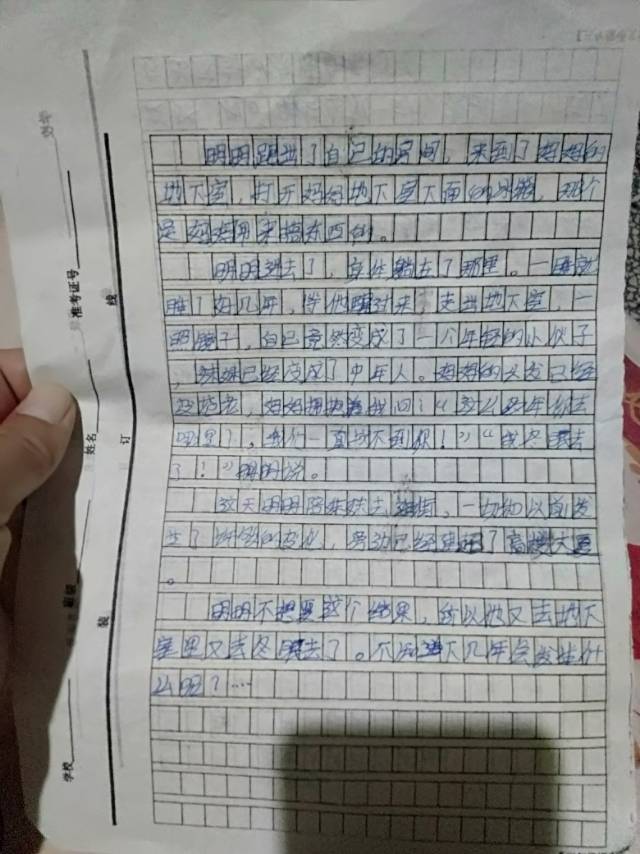 明明跑出了自己的房间，来到了妈妈的
地下室，打开妈妈地下室下面的冰箱，那个
是妈妈用来搞东西的。
明明进去了，身体躺在了那里。一睡就
睡了好几年，等他醒过来，走出地下室，一
照镜子，自己竟然变成了一个年轻的小伙子
，妹妹已经变成了中年人。妈妈的头发已经
，妈妈拥抱着我问：“这么多年你去
哪里了，我们一直找不到你！”“我冬眠去
了！”明明说。
这天明明陪妹妹去逛街，一切和以前发
生了的变化，旁边已经建了高楼大厦
。
明明不想要这个结果，所以他又去地下
室里又去冬眠去了。不知道下几年会发生什
么呢？……
学校
班级
姓名
准考证号
装
订
线